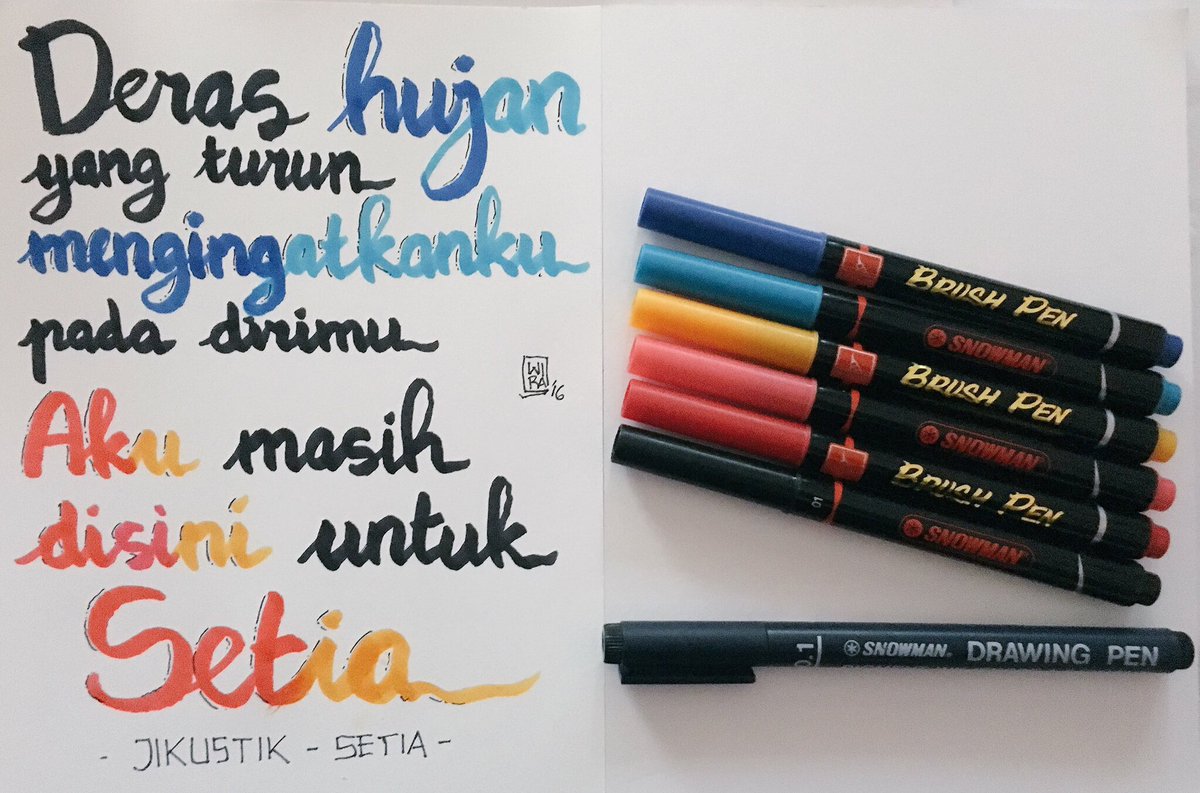 Deras hujan
yang turun
mengingatkanku
pada dirimu
WI
RA '16
Aku masih
disini untuk
Setia
- JIKUSTIK - SETIA -
BRUSH PEN
SNOWMAN
BRUSH PEN
SNOWMAN
BRUSH PEN
01
SNOWMAN
0.1 SNOWMAN DRAWING PEN